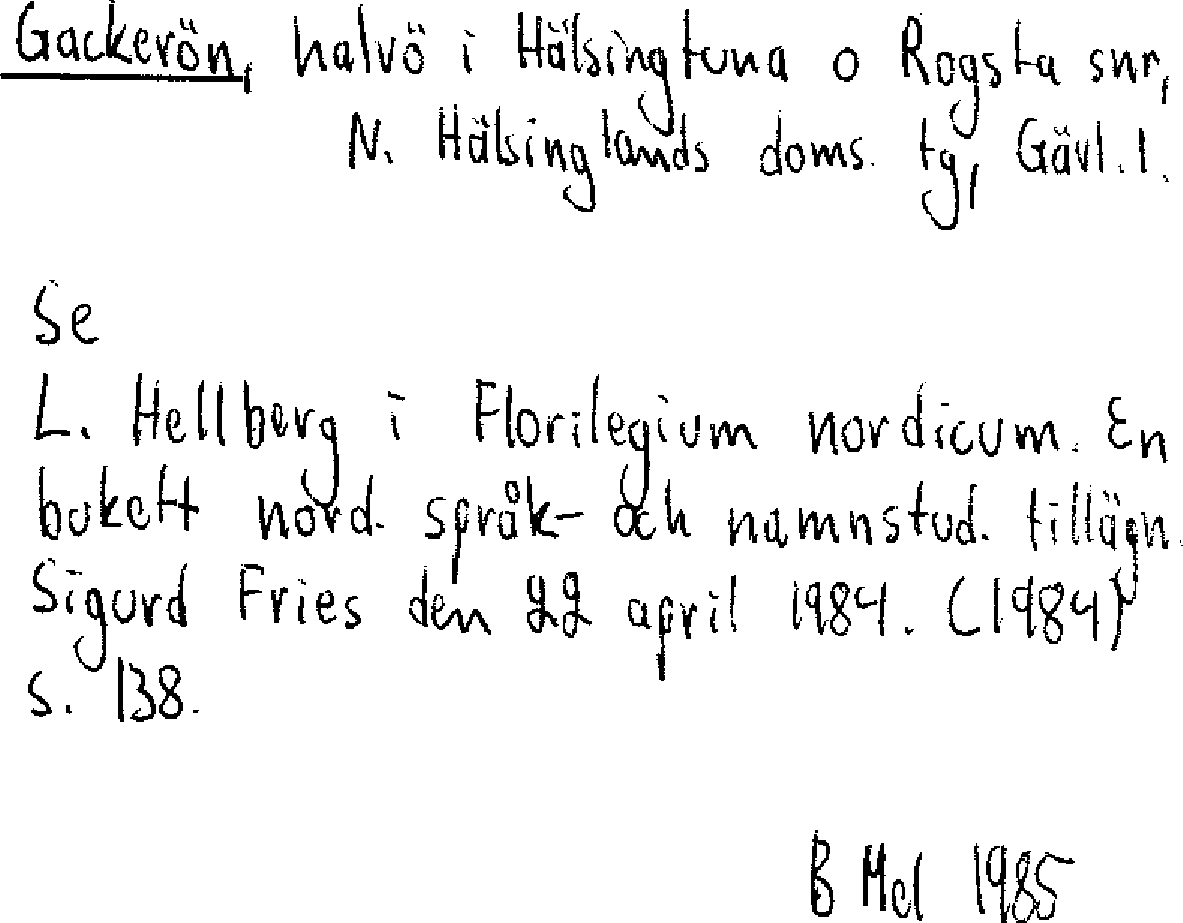 Gackerön, halvö i Hälsingtuna o Rogsta snr,
N. Hälsinglands doms. tg, Gävl.l.
Se
L. Hellberg i Florilegium nordicum. En
bukett nord. språk- och namnstud. tillägn.
Sigurd Fries den 22 april 1984. (1984)
s. 138.
B Mel 1985